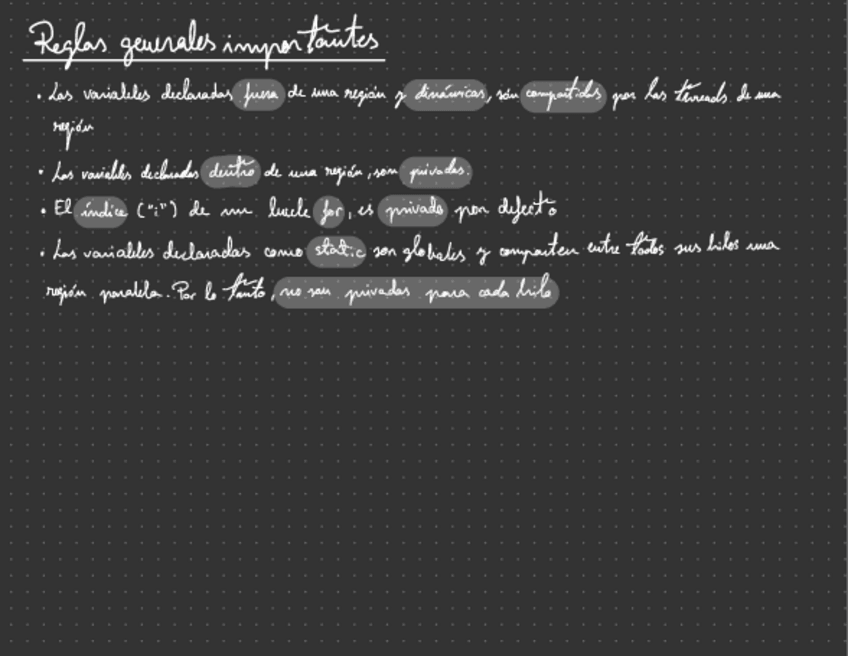 Reglas generales importantes
• Las variables declaradas fuera de una región y dinámicas, són compartidas por las threads de una
región
• Las variables declaradas dentro de una región, son privadas.
• El índice ("i") de un bucle for, es privado por defecto
• Las variables declaradas como static son globales y comparten entre todos sus hilos una
región paralela. Por lo tanto, no son privadas para cada hilo